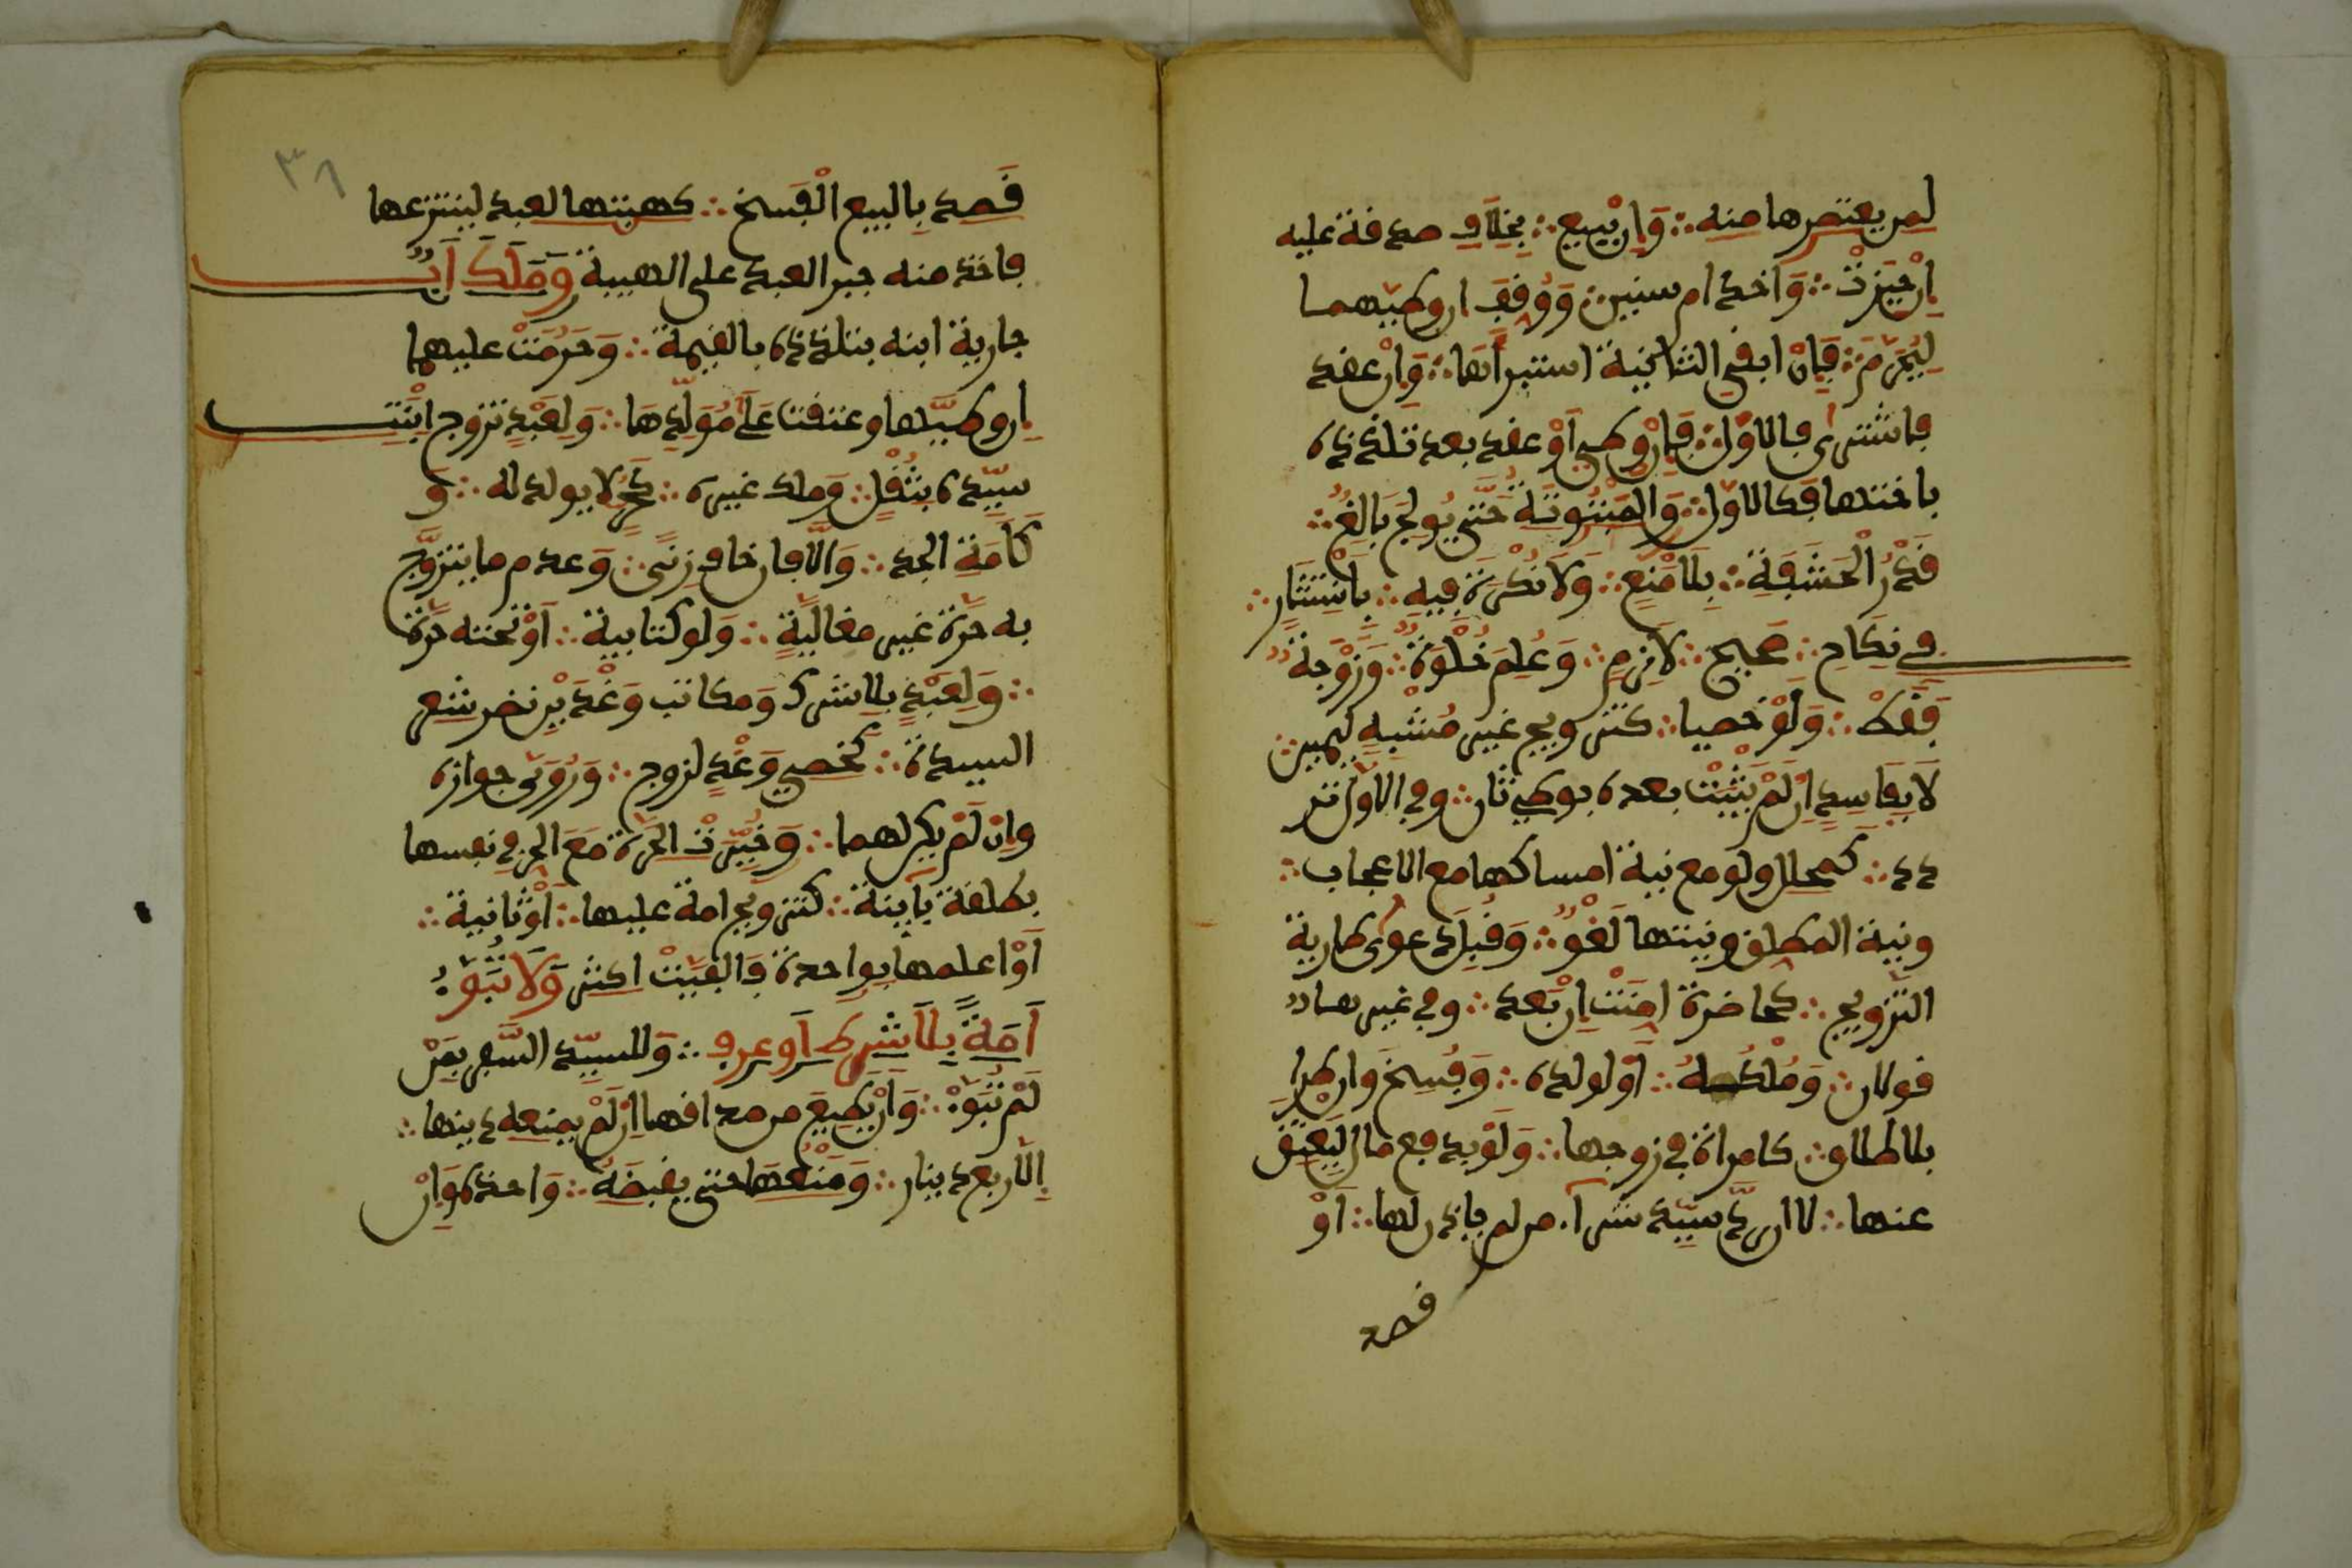 لمن يعتصرها منه وإن ببيع بخلاف صدقة عليه
إن حيزت وإخدام سنين ووقف إن وطئهما
ليحرم فإن أبقى الثانية استبرأها وإن عقد
فاشترى فالأول فإن وطئ أو عقد بعد تلذذه
بأختها فكالأول والمبتوتة حتى يولج بالغ
قدر الحشفة بلا منع ولا نكرة فيه بانتشار
في نكاح صحيح لازم وعلم خلوة وزوجة
فقط ولو خصيا كتزويج غير مشبه ليمين
لا بفاسد إن لم يثبت بعده بوطء ثان وفي الأول تر
دد كمحلل ولو مع نية إمساكها مع الإعجاب
ونية المطلق ونيتها لغو وقبل دعوى طارية
التزويج كحاضرة أمنت إن بعد وفي غيرها
قولان وملكه أو لولده وفسخ وإن طرا
بلا طلاق كامرأة في زوجها ولو بدفع مال ليعتق
عنها لا إن رد سيد شراء من لم يأذن لها أو
قصد
٣٦
قصد بالبيع الفسخ كهبتها لعبد لينتزعها
فأخذ منه جبر العبد على الهبة وملك أب
جارية ابنه بتلذذه بالقيمة وحرمت عليهما
إن وطئاها وعتقت على مولدها ولعبد تزوج ابنت
سيده بثقل وملك غيره كحر لا يولد له و
كأمة الجد وإلا فإن خاف زنى وعدم ما يتزوج
به حرة غير مغالية ولو كتابية أو تحته حرة
ولعبد بلا شرك ومكاتب وغدين نظر شعر
السيدة كخصي وغد لزوج وروي جوازه
وإن لم يكن لهما وخيرت الحرة مع الحر في نفسها
بطلقة بائنة كتزويج أمة عليها أو ثانية
أو علمها بواحدة فألفت أكثر ولا تبوأ
أمة بلا شرط أو عرف وللسيد السفر بمن
لم تبوأ وأن يضع من صداقها إن لم يمنعه دينها
إلا ربع دينار ومنعها حتى يقبضه وأخذه وإن